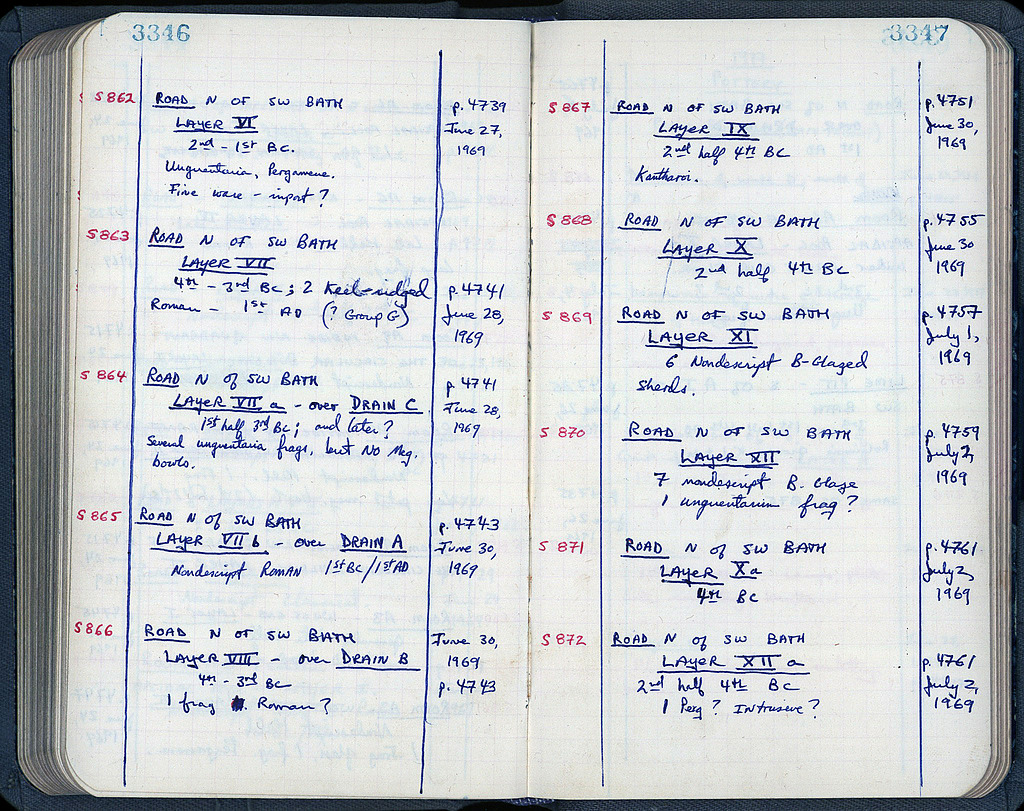 3346
S 862 ROAD N OF SW BATH p. 4739
LAYER VI June 27,
2nd - 1st BC. 1969
Unguentaria, Pergamene.
Fine ware - import ?
S 863 ROAD N OF SW BATH
LAYER VII
4th - 3rd BC; 2 Keel-ridged p. 4741
Roman - 1st AD (? Group G) June 28,
1969
S 864 ROAD N of SW BATH p. 4741
LAYER VII a - over DRAIN C June 28,
1st half 3rd BC; and later? 1969
Several unguentaria frags, but NO Meg.
bowls.
S 865 ROAD N of SW BATH p. 4743
LAYER VII b - over DRAIN A June 30,
Nondescript ROMAN 1st BC/1st AD 1969
S 866 ROAD N OF SW BATH June 30,
LAYER VIII - over DRAIN B 1969
4th - 3rd BC p. 4743
1 frag Roman?
3347
S 867 ROAD N OF SW BATH p. 4751
LAYER IX June 30,
2nd half 4th BC 1969
Kantharoi.
S 868 ROAD N OF SW BATH p. 4755
LAYER X June 30
2nd half 4th BC 1969
S 869 ROAD N OF SW BATH p. 4757
LAYER XI July 1,
6 Nondescript B-Glazed 1969
sherds.
S 870 ROAD N OF SW BATH p. 4759
LAYER XII July 2,
7 nondescript B. Glaze 1969
1 unguentarium frag?
S 871 ROAD N of SW BATH p. 4761
LAYER X a July 2,
4th BC 1969
S 872 ROAD N of SW BATH p. 4761
LAYER XII a July 2,
2nd half 4th BC 1969
1 Perg? Intrusive?